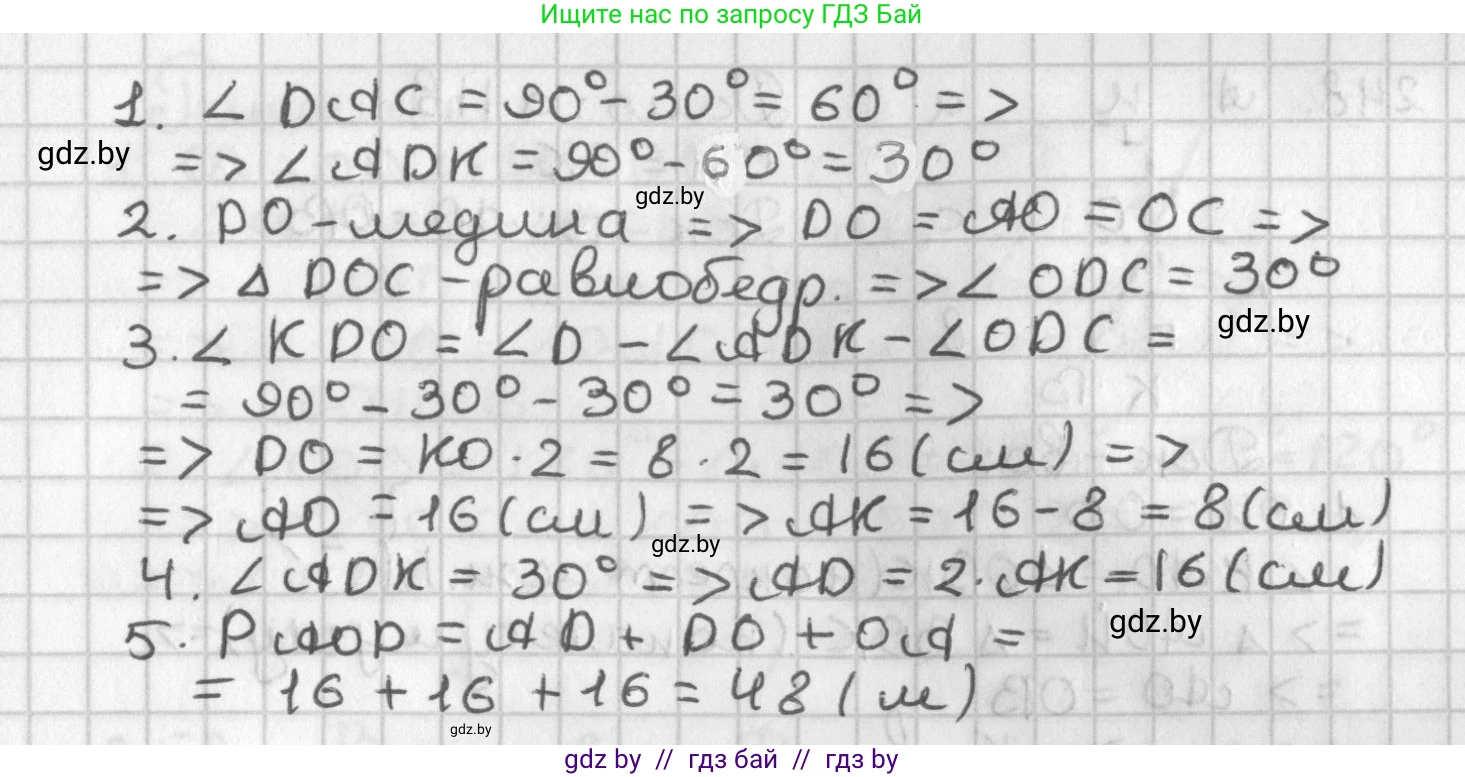 Ищите нас по запросу ГДЗ Бай
1. ∠ DAC = 90° - 30° = 60° =>
gdz.by
=> ∠ ADK = 90° - 60° = 30°
gdz.by
2. DO - медиина => DO = AO = OC =>
=> Δ DOC - равнобедр. => ∠ ODC = 30°
gdz.by
3. ∠ KDO = ∠D - ∠ADK - ∠ODC =
= 90° - 30° - 30° = 30° =>
=> DO = KO · 2 = 8 · 2 = 16 (см) =>
=> AO = 16 (см) => AK = 16 - 8 = 8 (см)
gdz.by
4. ∠ADK = 30° => AD = 2·AK = 16 (см)
gdz.by
5. PAOD = AD + DO + OA =
= 16 + 16 + 16 = 48 (м)
gdz.by
gdz by // гдз бай // гдз by